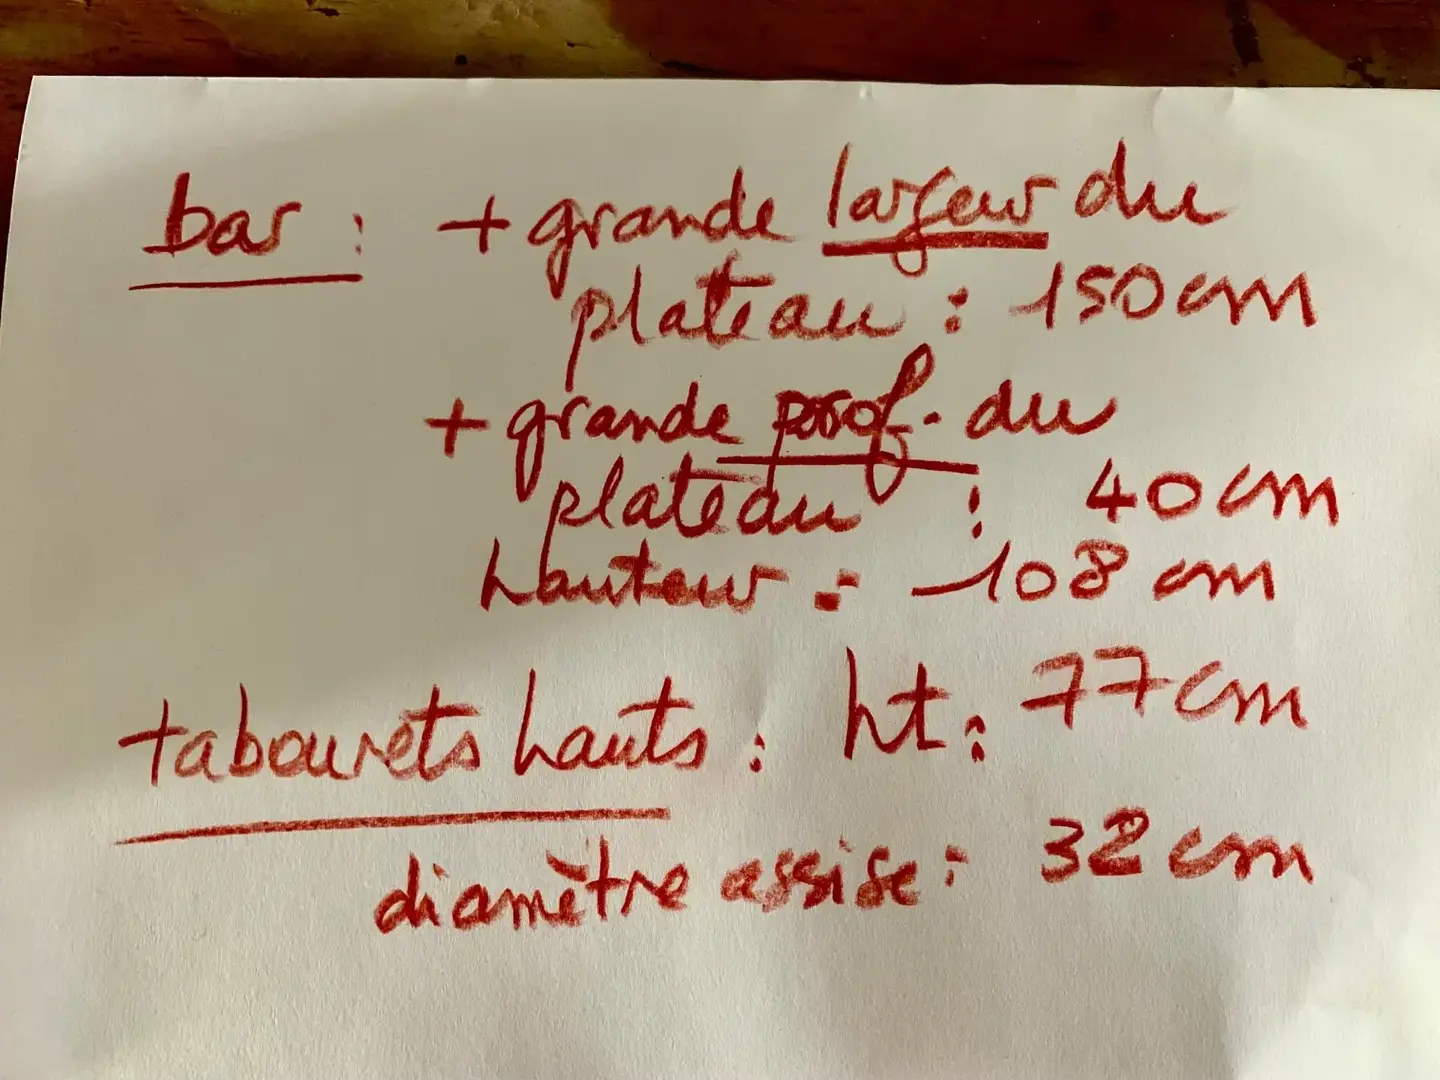 bar : + grande largeur du
plateau : 150 cm
+ grande prof. du
plateau : 40 cm
hauteur : 108 cm
tabourets hauts : ht : 77 cm
diamètre assise : 32 cm